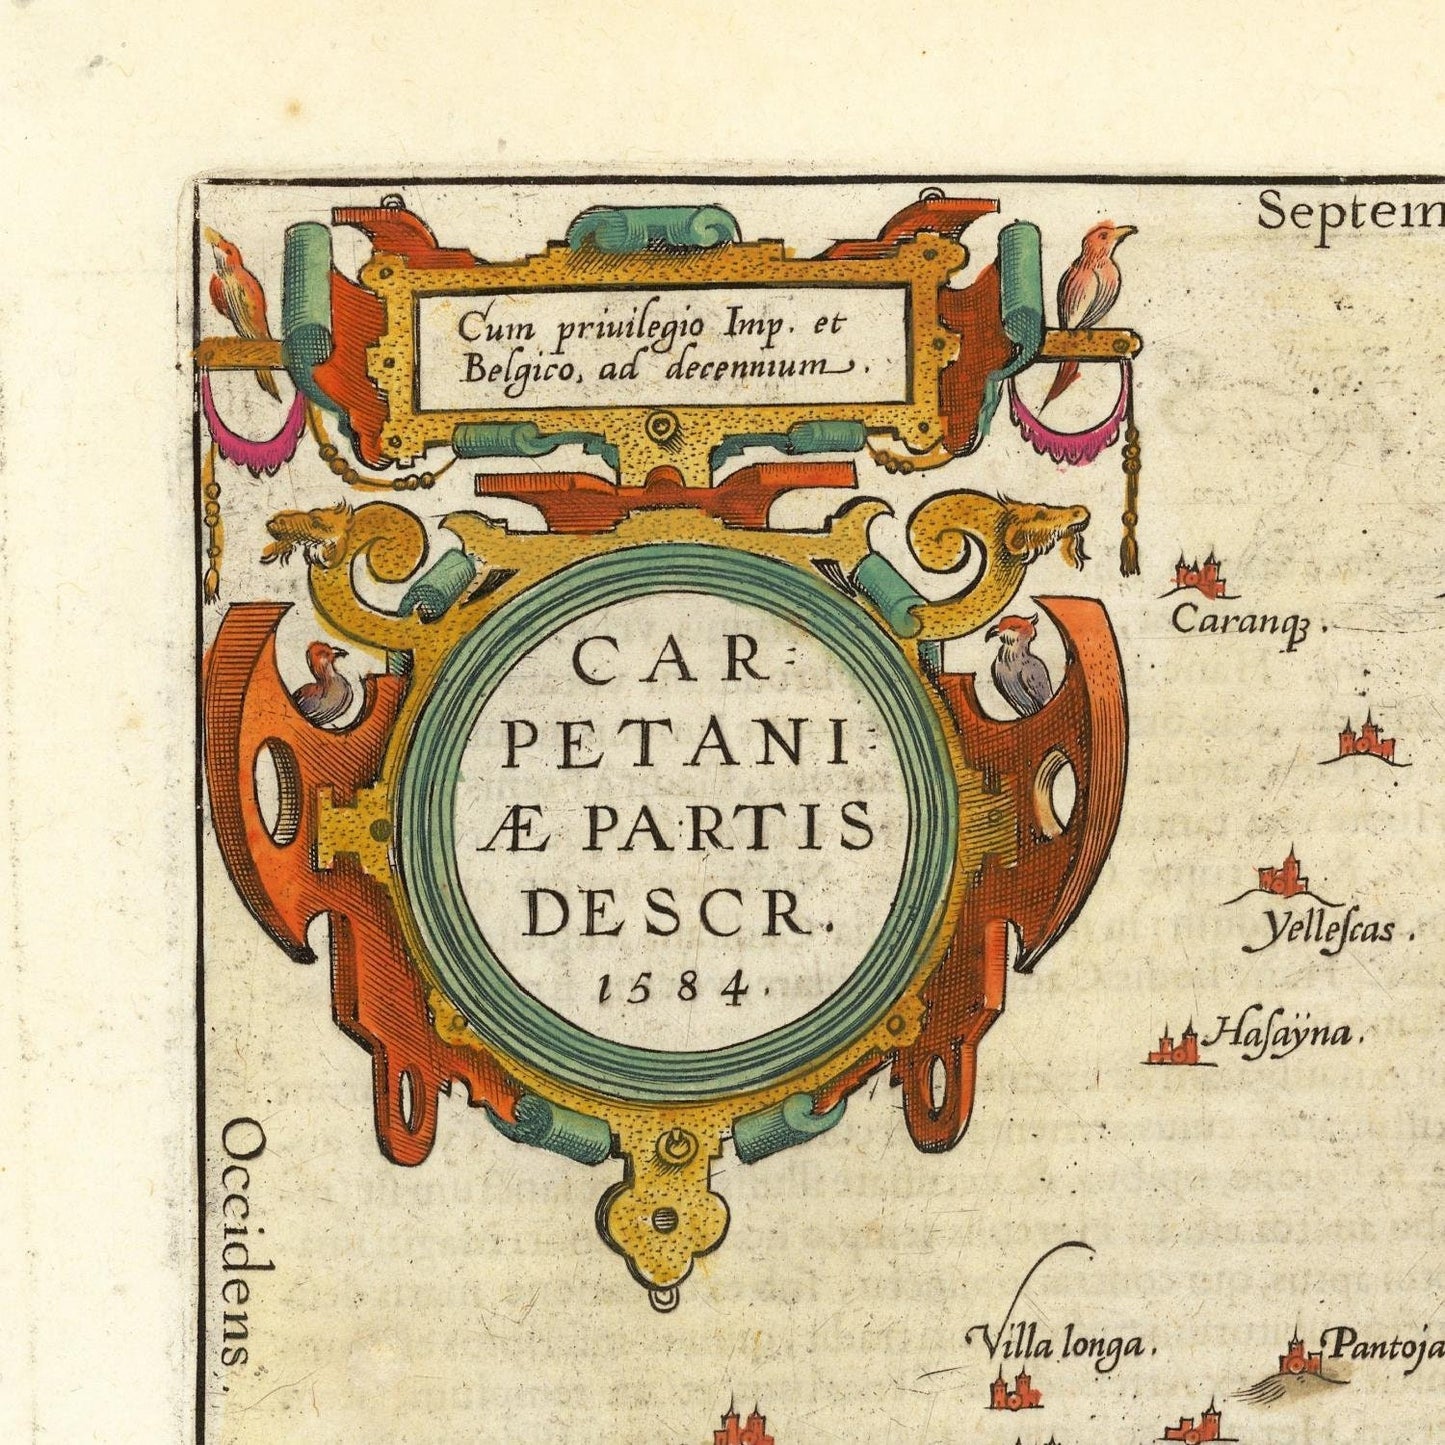 Septem
Cum priuilegio Imp. et
Belgico, ad decennium.
CAR⸗
PETANI⸗
Æ PARTIS
DESCR.
1584.
Occidens
Caranqꝫ.
Yelleſcas.
Haſaÿna.
Villa longa.
Pantoja